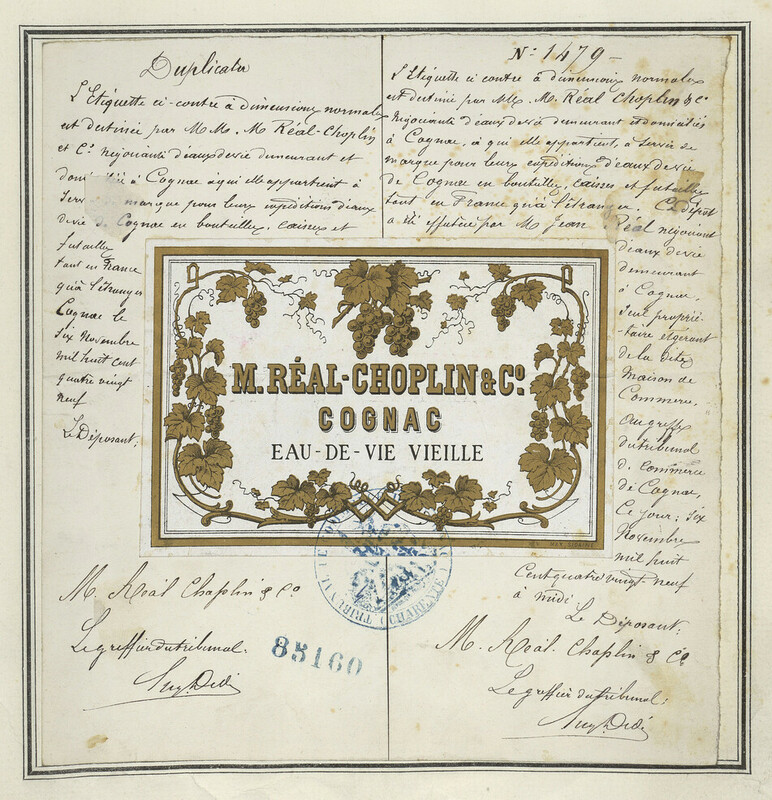 Duplicata
L'Etiquette ci-contre à dimensions normales
est destinée par M M. M Réal-Choplin
et Cie Négociants d'eaux de vie demeurant et
domiciliés à Cognac à qui elle appartient à
servir marque pour leurs expéditions d'eaux
de vie de Cognac en bouteilles, caisses et
futailles
tant en France
qu'à l'étranger
Cognac le
six Novembre
mil huit cent
quatre vingt
neuf
Le Déposant;
M. Réal Choplin & Co
Le greffier du tribunal:
N: 1479
L'Etiquette ci contre à dimensions normales
est destinée par MM. M. Réal Choplin & Co
Négociants d'eaux de vie demeurant et domiciliés
à Cognac, à qui elle appartient, à servir de
marque pour leurs expéditions d'eaux de vie
de Cognac en bouteilles, caisses et futailles
tant en France qu'à l'étranger. Ce dépôt
a été effectué par M. Jean Réal négociant
d'eaux de vie
demeurant
à Cognac,
seul proprié-
taire et gérant
de la dite
Maison de
Commerce,
au greffe
du tribunal
de commerce
de Cognac,
Ce jour: six
Novembre
mil huit
Cent quatre vingt neuf
à midi
Le Déposant;
M. Réal. Choplin & Co
Le greffier du tribunal:
M. RÉAL-CHOPLIN & Co.
COGNAC
EAU-DE-VIE VIEILLE
CHARENTE
85160